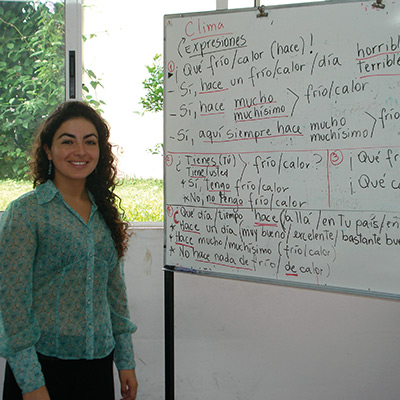 Clima
(Expresiones)
① ¡Qué frío/calor (hace)! horrible
- Sí, hace un frío/calor/día terrible
- Sí, hace mucho muchísimo > frío/calor
- Sí, aquí siempre hace mucho muchísimo > frío
② ¿Tienes (tú) Tiene/usted > frío/calor? ③ ¡Qué
* Sí, tengo frío/calor ¡Qué
* No, no tengo frío/calor
④ ¿Qué día/tiempo hace (allá/en tu país/en
* Hace un día (muy bueno/excelente/bastante
* Hace mucho/muchísimo (frío/calor)
* No hace nada de frío/de calor)